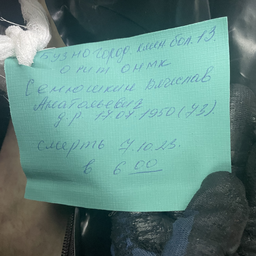 БУЗ Ногород. клин бол. 13
о н и т ОНМК
Семошкин Владислав
Анатольевич
д.р 17.07.1950 (73).
смерть 7.10.23.
в 6 00